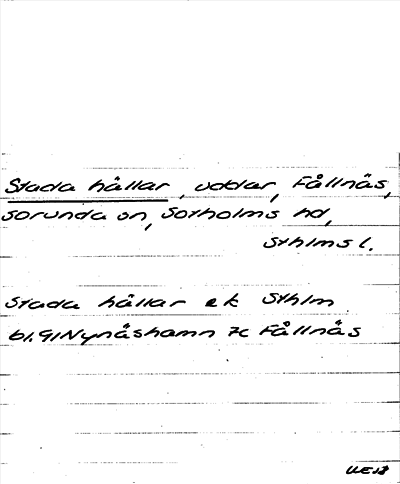 Stada hållar, uddar, Fållnäs,
Sorunda sn, Sotholms hd,
Sthlms l.
Stada hållar ek Sthlm
bl. 91 Nynäshamn 7c Fållnäs